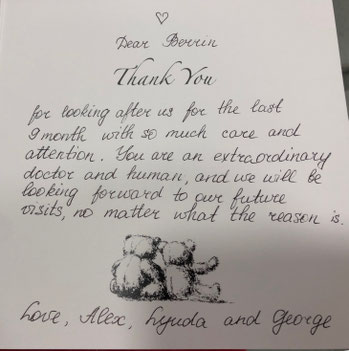 Dear Berrin
Thank You
for looking after us for the last
9 month with so much care and
attention. You are an extraordinary
doctor and human, and we will be
looking forward to our future
visits, no matter what the reason is.
Love, Alex, Lyuda and George